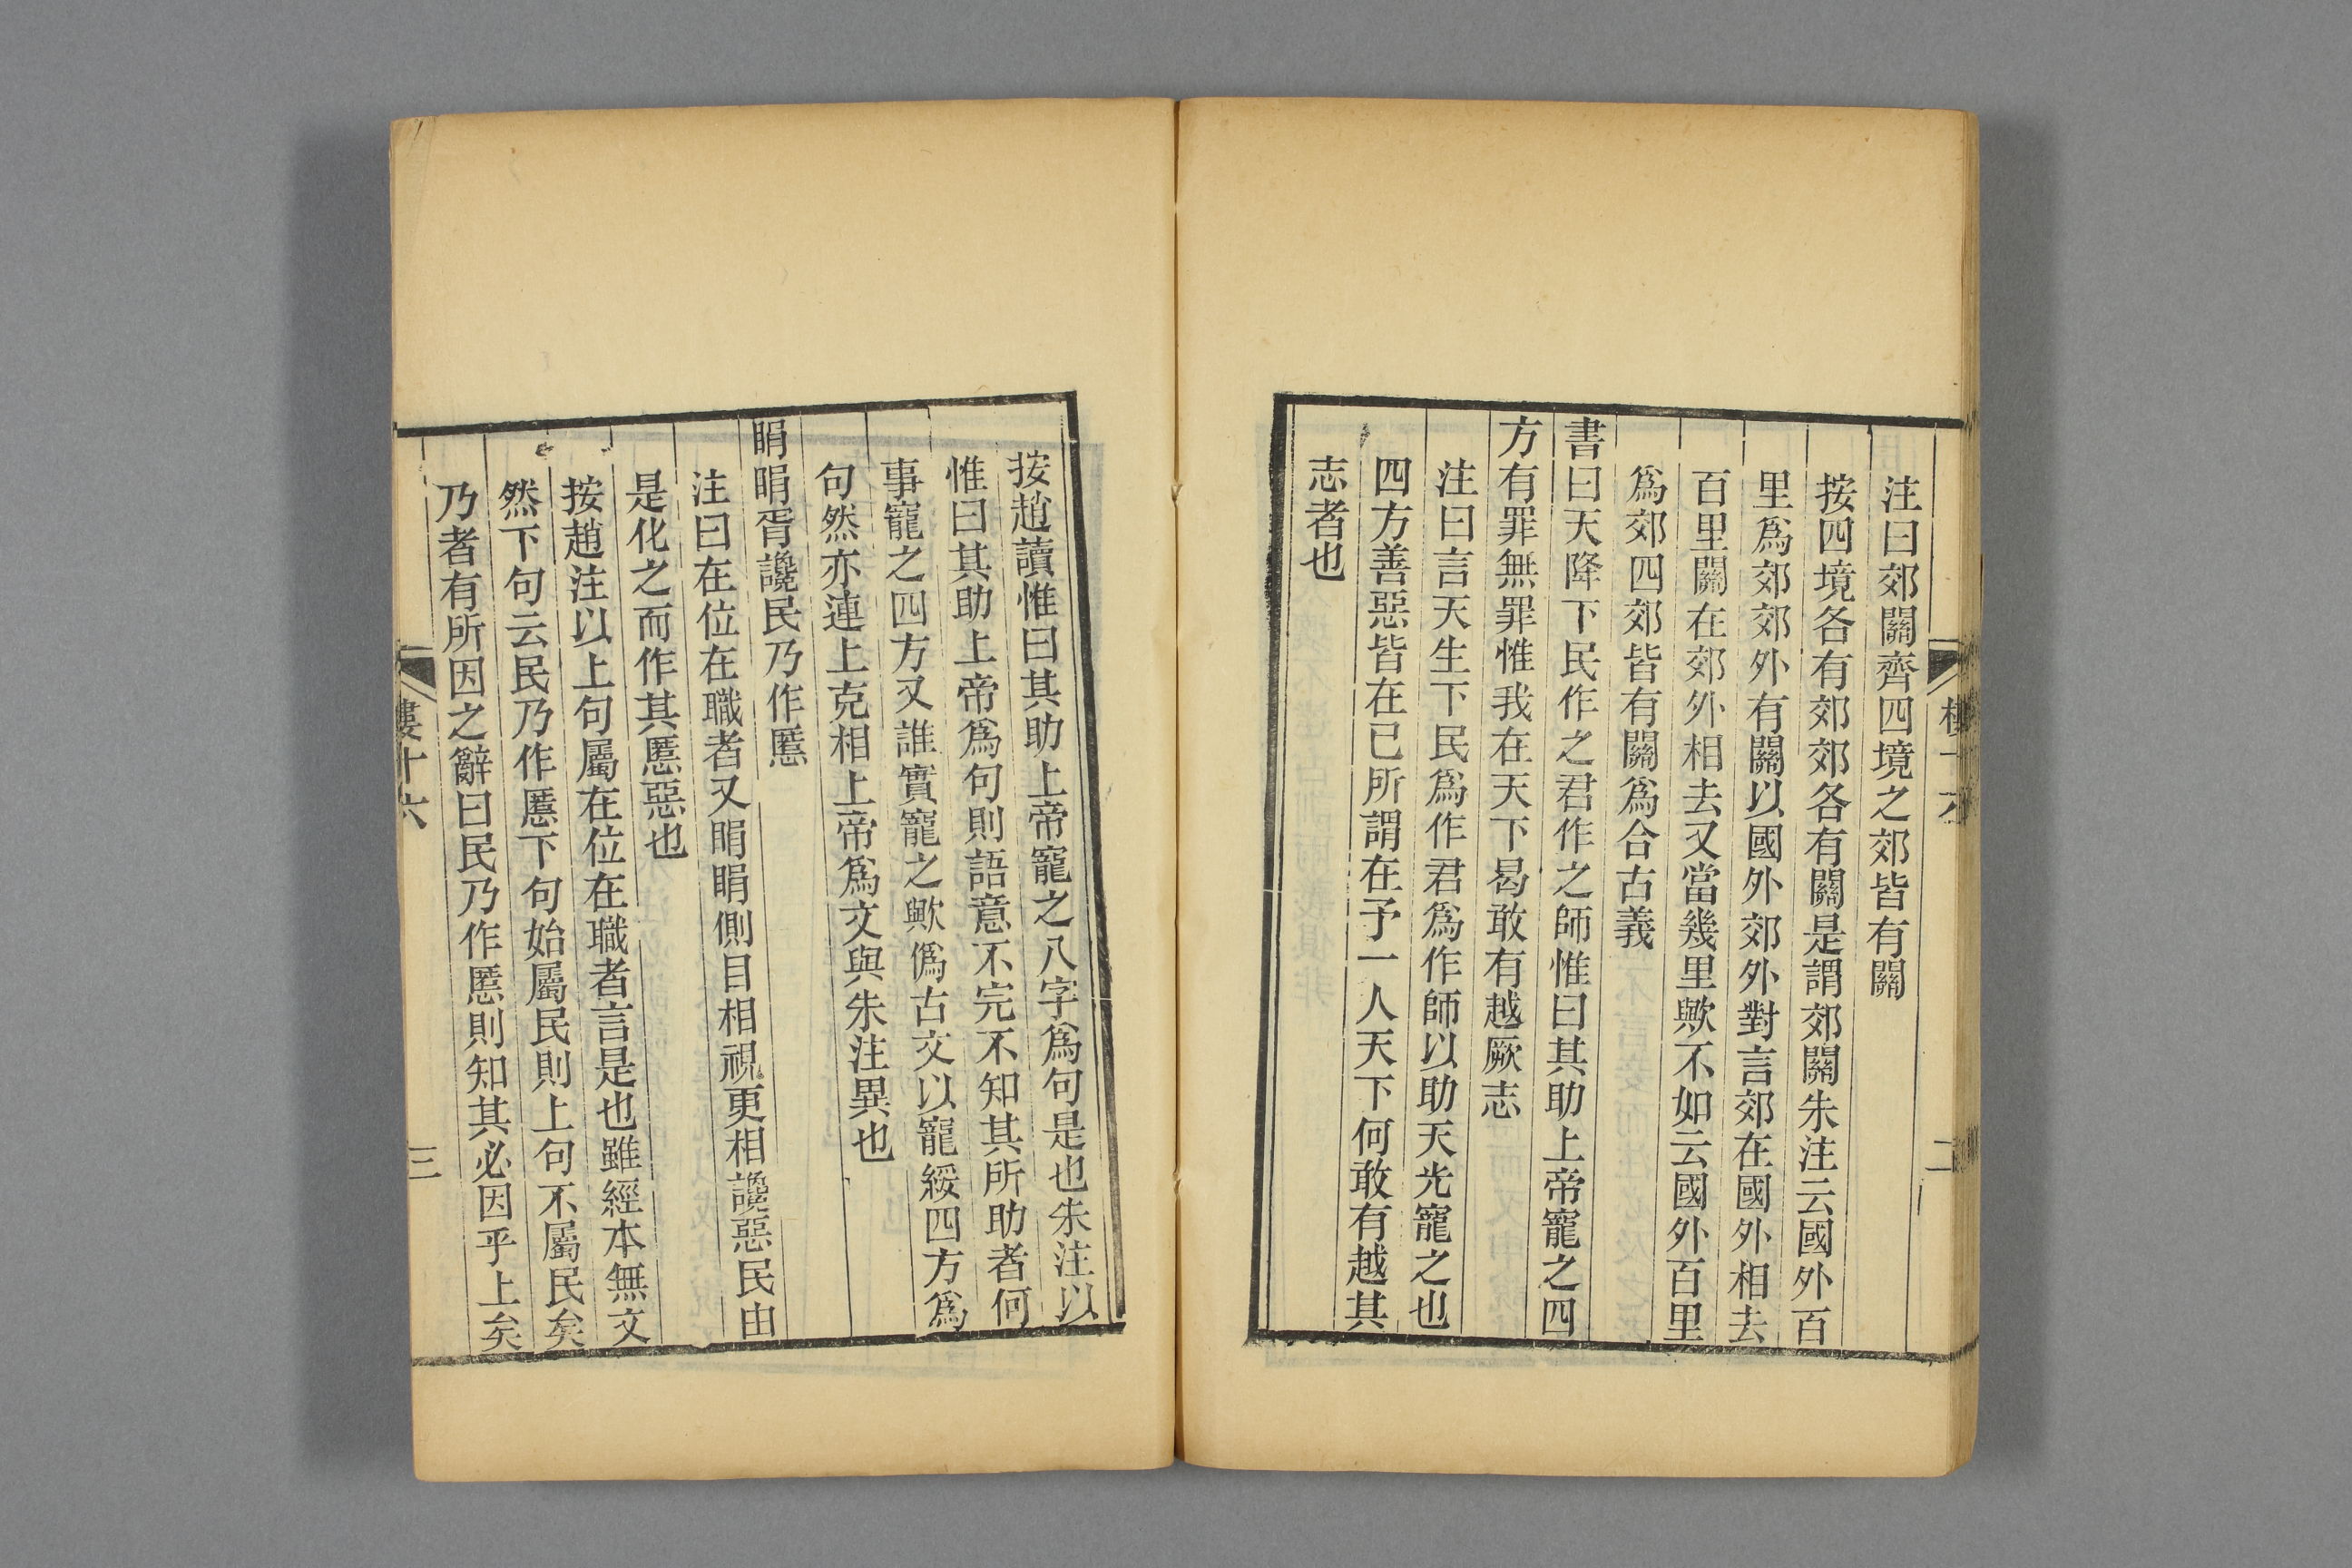 注曰郊關齊四境之郊皆有關
按四境各有郊郊各有關是謂郊關朱注云國外百
里爲郊郊外有關以國外郊外對言郊在國外相去
百里關在郊外相去又當幾里歟不如云國外百里
爲郊四郊皆有關爲合古義
書曰天降下民作之君作之師惟曰其助上帝寵之四
方有罪無罪惟我在天下曷敢有越厥志
注曰言天生下民爲作君爲作師以助天光寵之也
四方善惡皆在已所謂在予一人天下何敢有越其
志者也
二
按趙讀惟曰其助上帝寵之八字爲句是也朱注以
惟曰其助上帝爲句則語意不完不知其所助者何
事寵之四方又誰實寵之歟僞古文以寵綏四方爲
句然亦連上克相上帝爲文與朱注異也
睊睊胥讒民乃作慝
注曰在位在職者又睊睊側目相視更相讒惡民由
是化之而作其慝惡也
按趙注以上句屬在位在職者言是也雖經本無文
然下句云民乃作慝下句始屬民則上句不屬民矣
乃者有所因之辭曰民乃作慝則知其必因乎上矣
樓十六
三